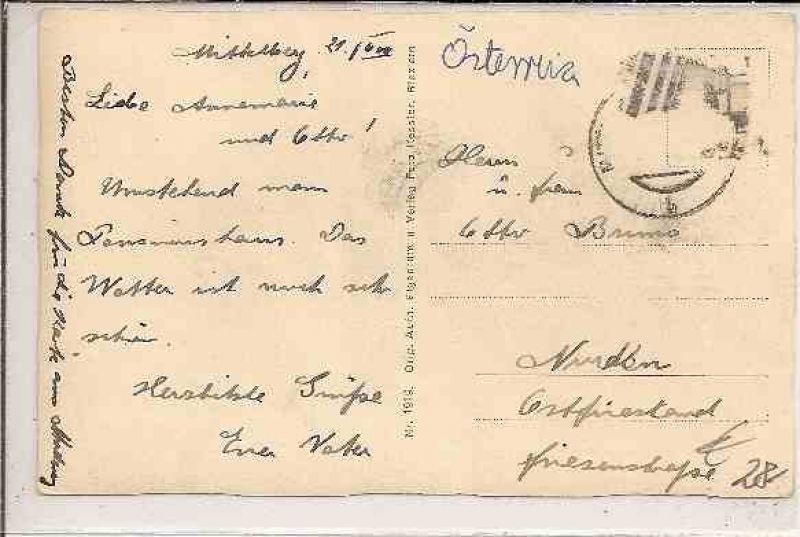 Mittelberg, 21.
Liebe Annemarie
und Otto!
Umstehend mein
Pensionshaus. Das
Wetter ist noch sehr
schön.
Herzlichste Grüße
Euer Vater
Besten Dank für die Karte aus
Nr. 1919. Orig. Aufn. Eigentum u. Verlag Foto Kessler, Riezlern
Österreich
Herrn
u. Frau
Otto Bruns
Norden
Ostfriesland
Friesenstraße 28